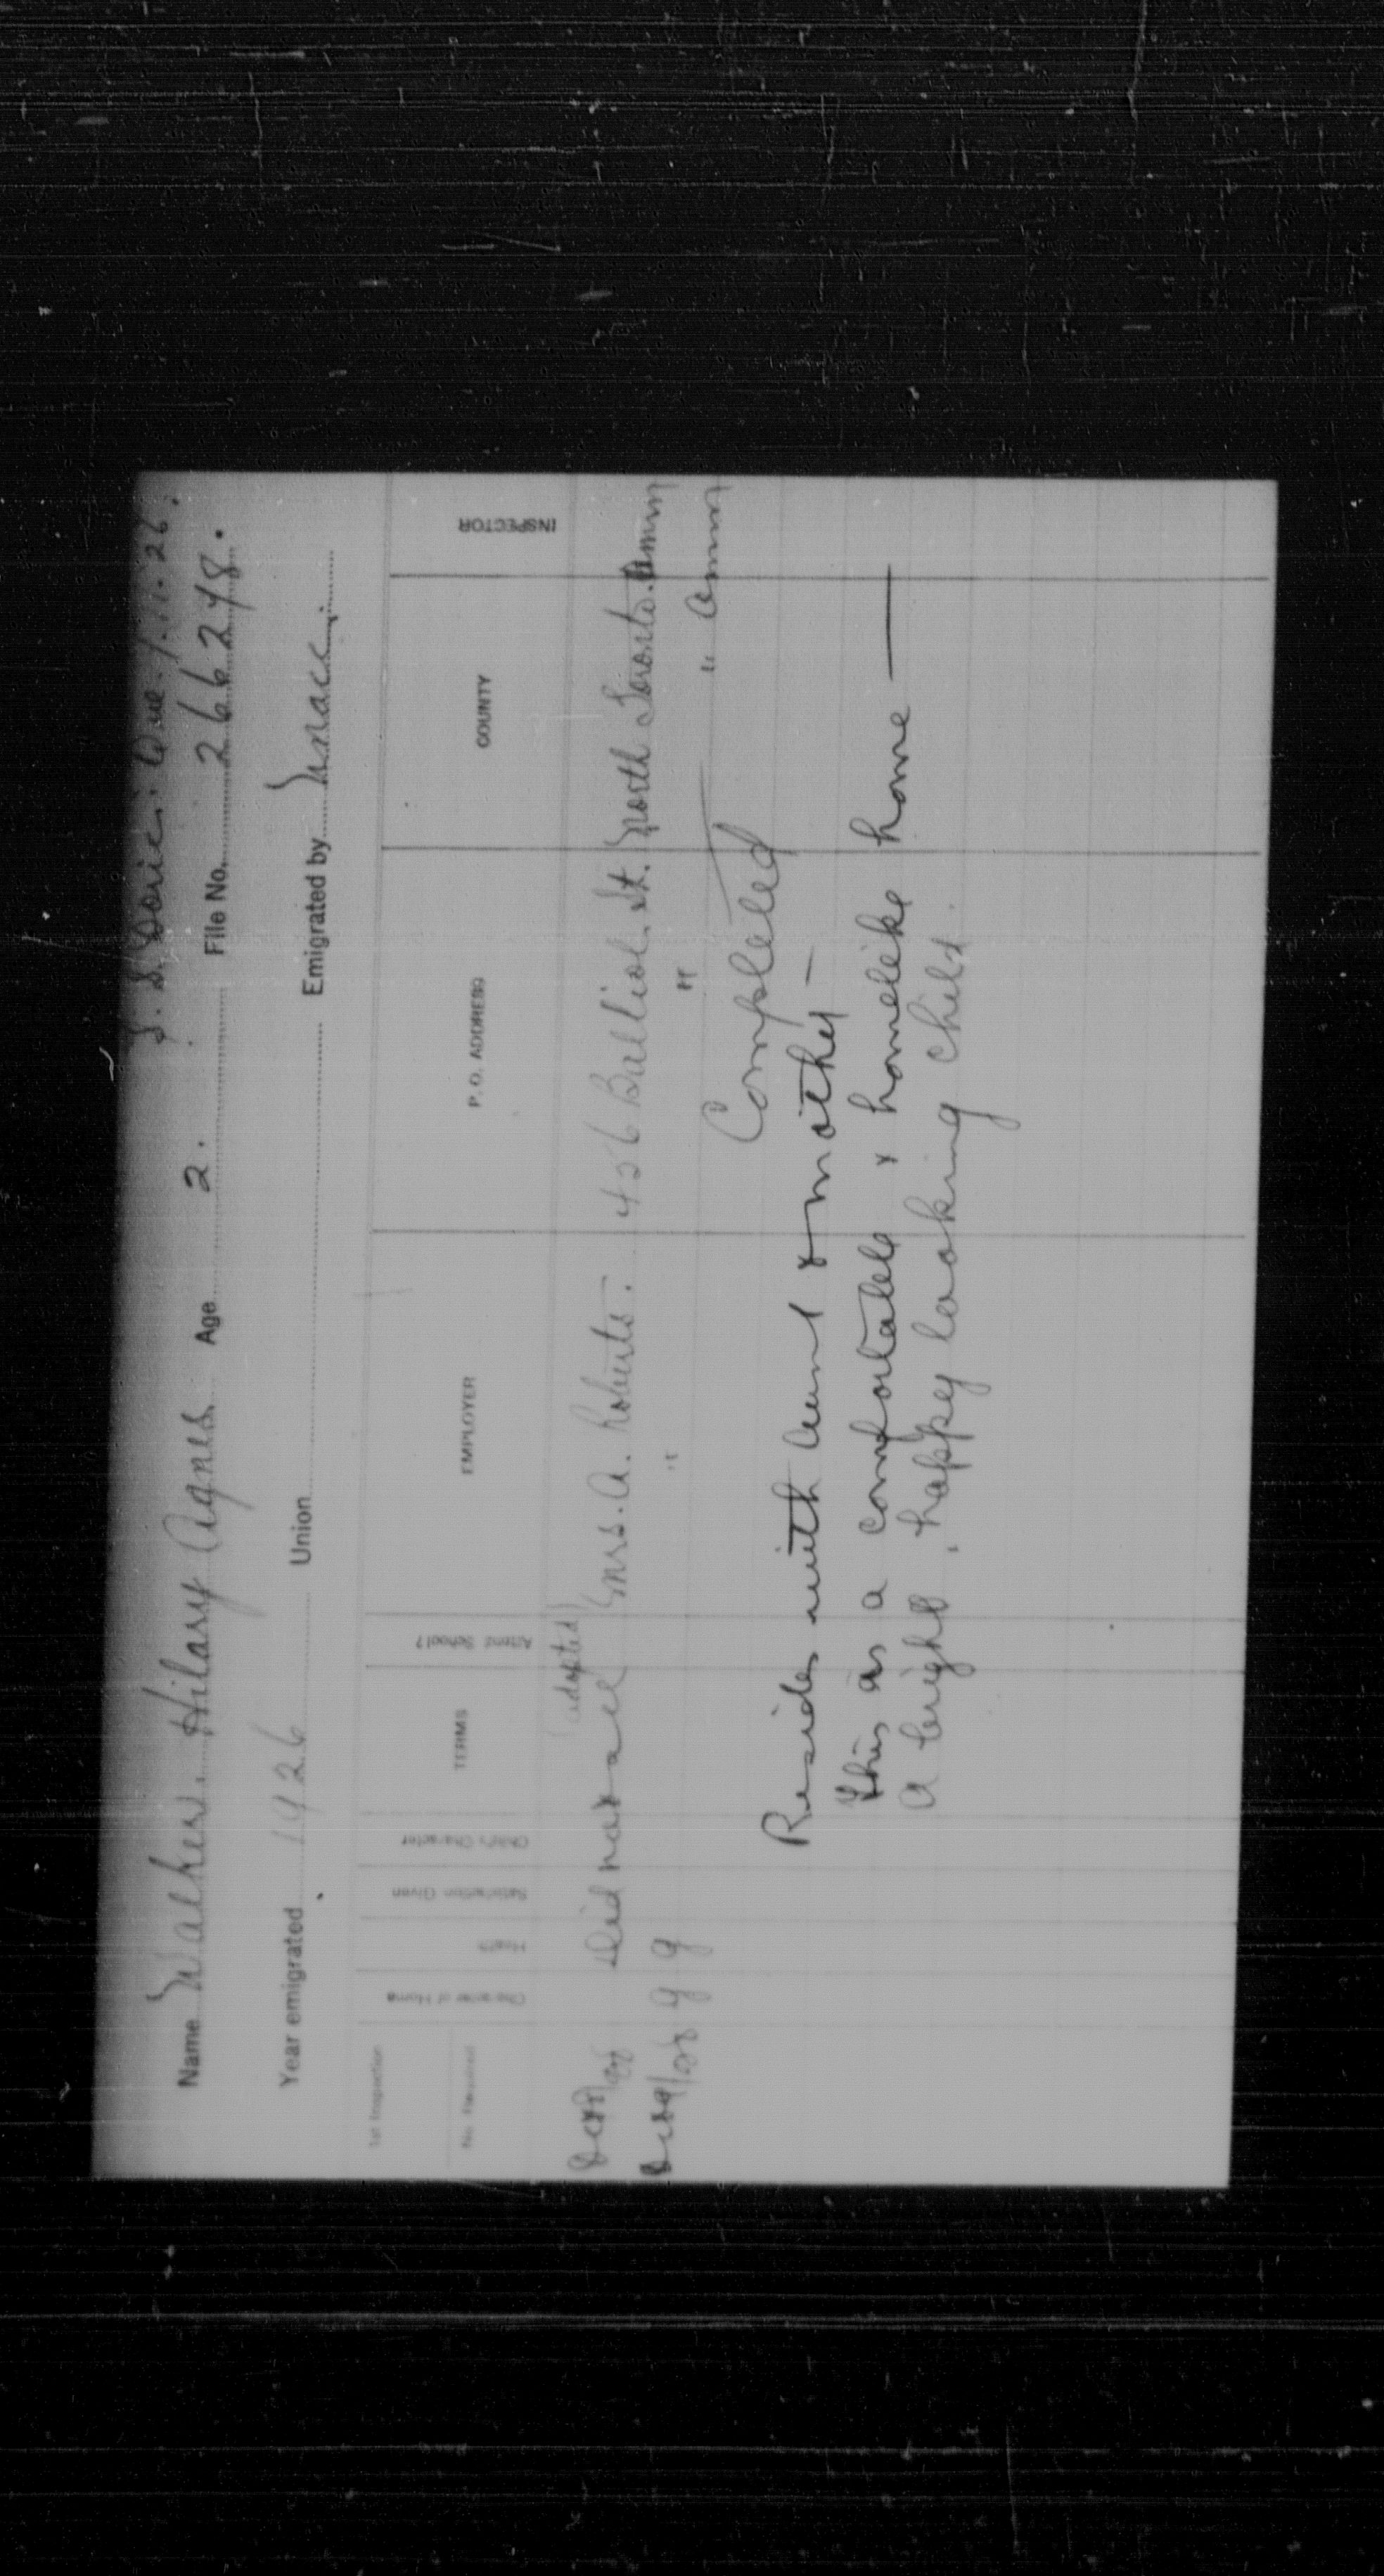 S.S. Doric: Que. 7.11.26.
Name Walker. Hilary Agnes Age 2. File No. 266248.
Year emigrated 1926 Union Emigrated by Macc.
1st Inspection
No. Required
Character of Home Health Satisfaction Given Child's Character TERMS Attend School? EMPLOYER P. O. ADDRESS COUNTY INSPECTOR
(adopted)
did not see Mrs. A. Roberts. 456 Balliol St. North Toronto.
g g " " "
Completed
Resides with Aunt & mother —
This is a comfortable & homelike home —
A bright, happy looking child.